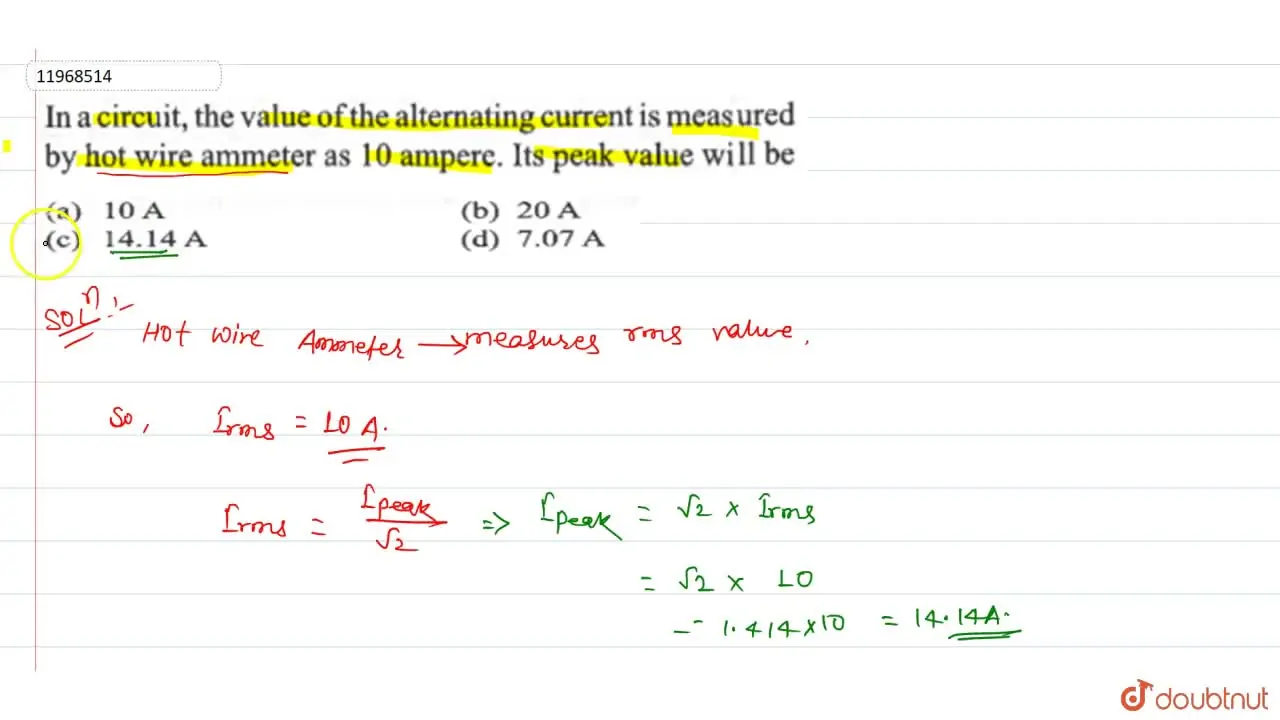 11968514
In a circuit, the value of the alternating current is measured
by hot wire ammeter as 10 ampere. Its peak value will be
(a) 10 A (b) 20 A
(c) 14.14 A (d) 7.07 A
Solⁿ :-
Hot wire Ammeter → measures rms value.
So, Irms = 10 A.
Irms = Ipeak/√2 => Ipeak = √2 × Irms
= √2 × 10
= 1.414×10 = 14.14A.
doubtnut